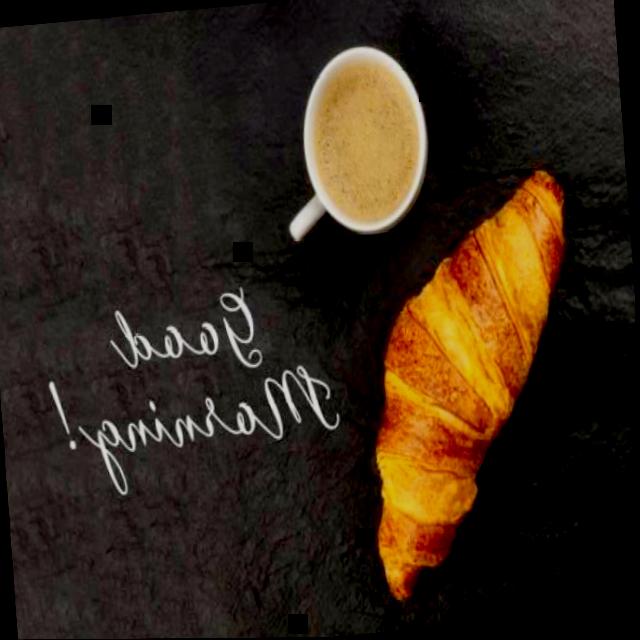 Good
Morning!